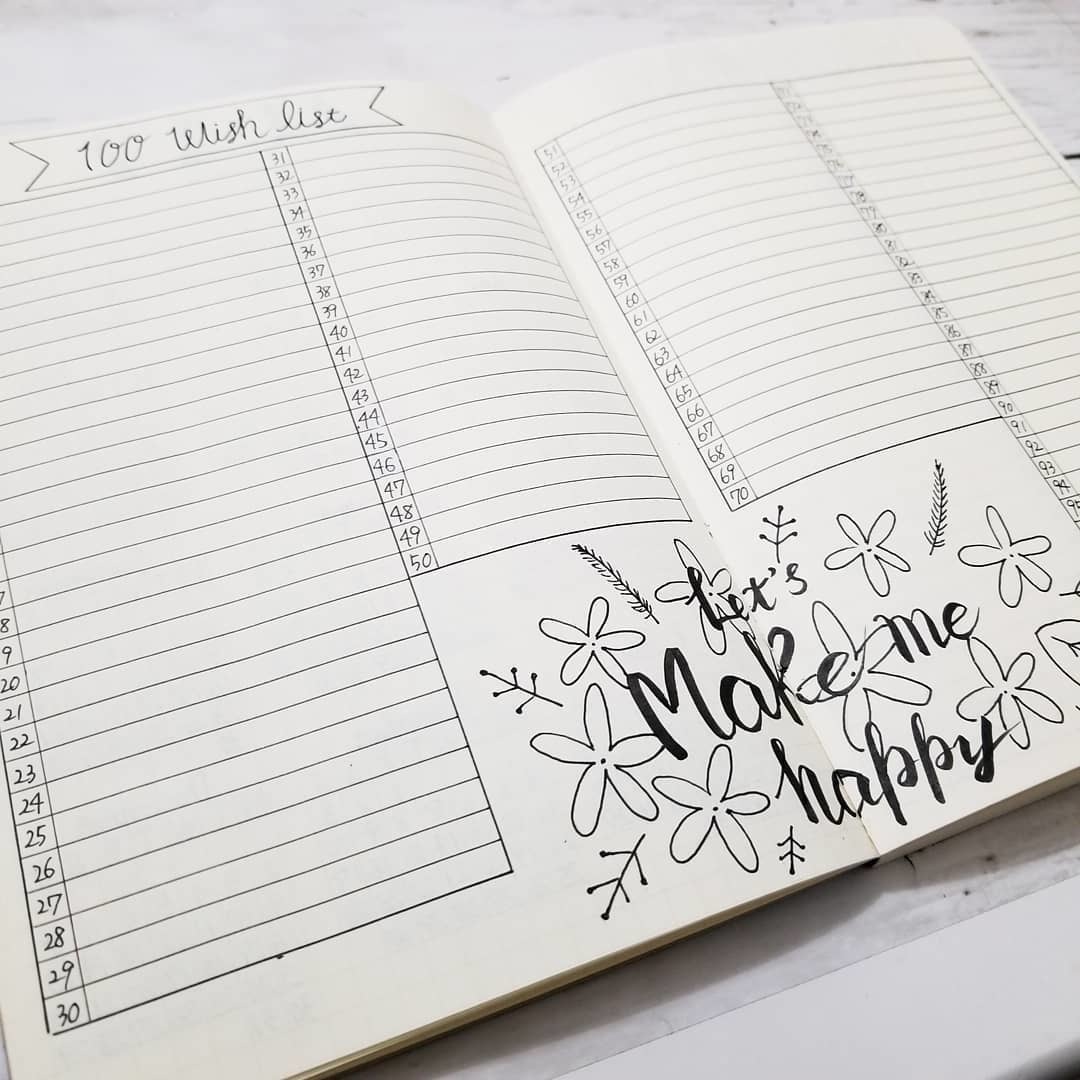 100 Wish list
8
9
20
21
22
23
24
25
26
27
28
29
30
31
32
33
34
35
36
37
38
39
40
41
42
43
44
45
46
47
48
49
50
51
52
53
54
55
56
57
58
59
60
61
62
63
64
65
66
67
68
69
70
77
78
79
80
81
82
83
84
85
86
87
88
89
90
91
92
93
94
95
Let's
Make me
happy